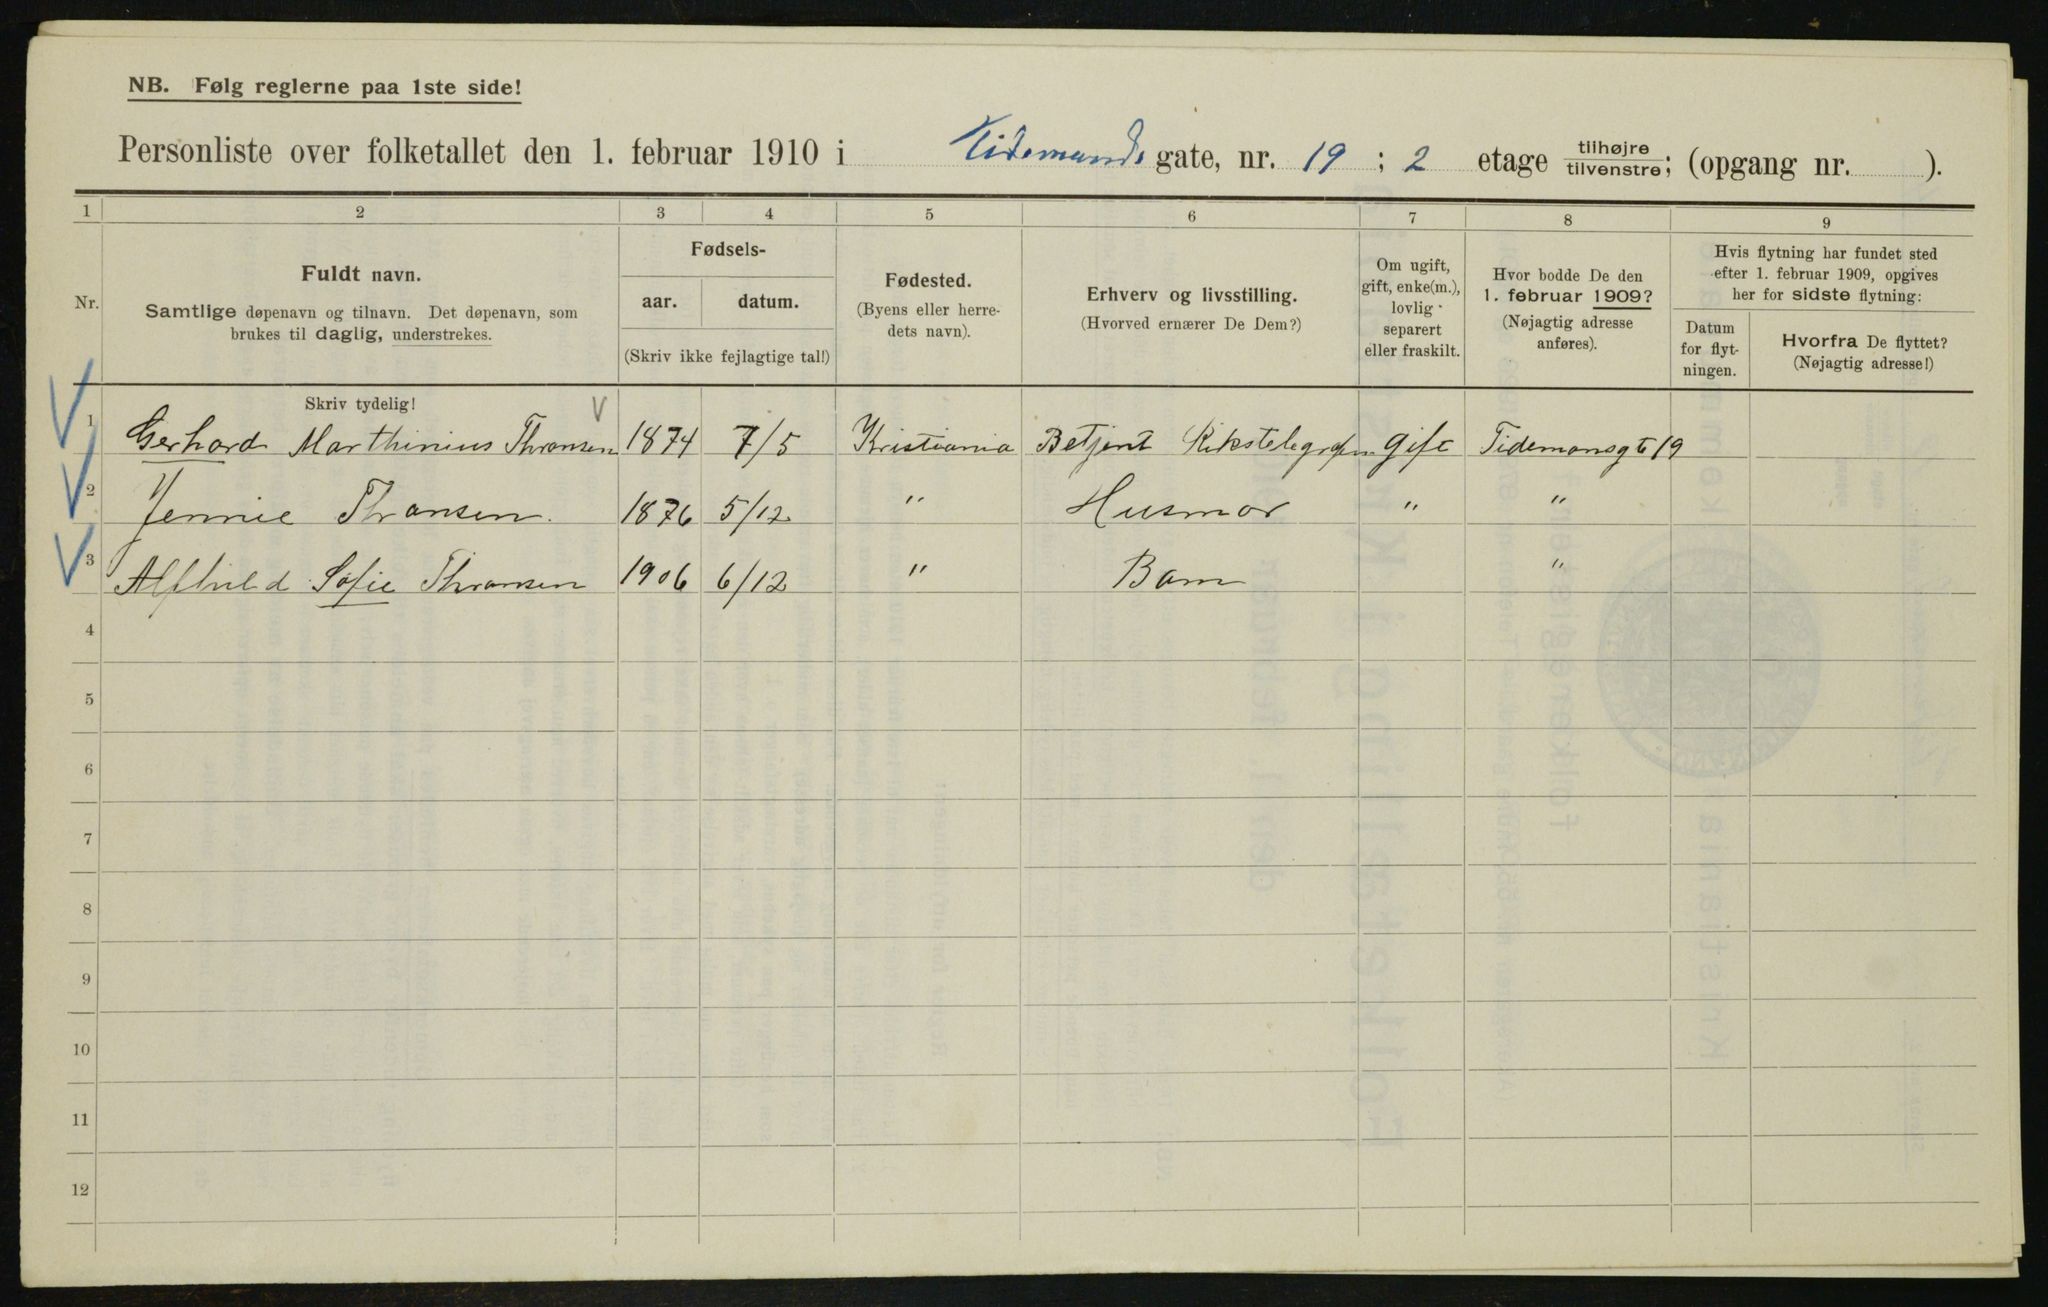 NB. Følg reglerne paa 1ste side!
Personliste over folketallet den 1. februar 1910 i Tidemands gate, nr. 19 ; 2 etage tilhøjre tilvenstre; (opgang nr. ).
1 2 3 4 5 6 7 8 9
Nr.
Fuldt navn.
Samtlige døpenavn og tilnavn. Det døpenavn, som
brukes til daglig, understrekes.
Fødsels-
aar. datum.
(Skriv ikke fejlagtige tal!)
Fødested.
(Byens eller herre-
dets navn).
Erhverv og livsstilling.
(Hvorved ernærer De Dem?)
Om ugift,
gift, enke(m.),
lovlig
separert
eller fraskilt.
Hvor bodde De den
1. februar 1909?
(Nøjagtig adresse
anføres).
Hvis flytning har fundet sted
efter 1. februar 1909, opgives
her for sidste flytning:
Datum
for flyt-
ningen.
Hvorfra De flyttet?
(Nøjagtig adresse!)
Skriv tydelig!
1 Gerhard Marthinius Thransen 1874 7/5 Kristiania Betjent Rikstelegrafen gift Tidemansgt 19
2 Jennie Thransen. 1876 5/12 " Husmor " "
3 Alfhild Sofie Thransen 1906 6/12 " Barn "
4
5
6
7
8
9
10
11
12